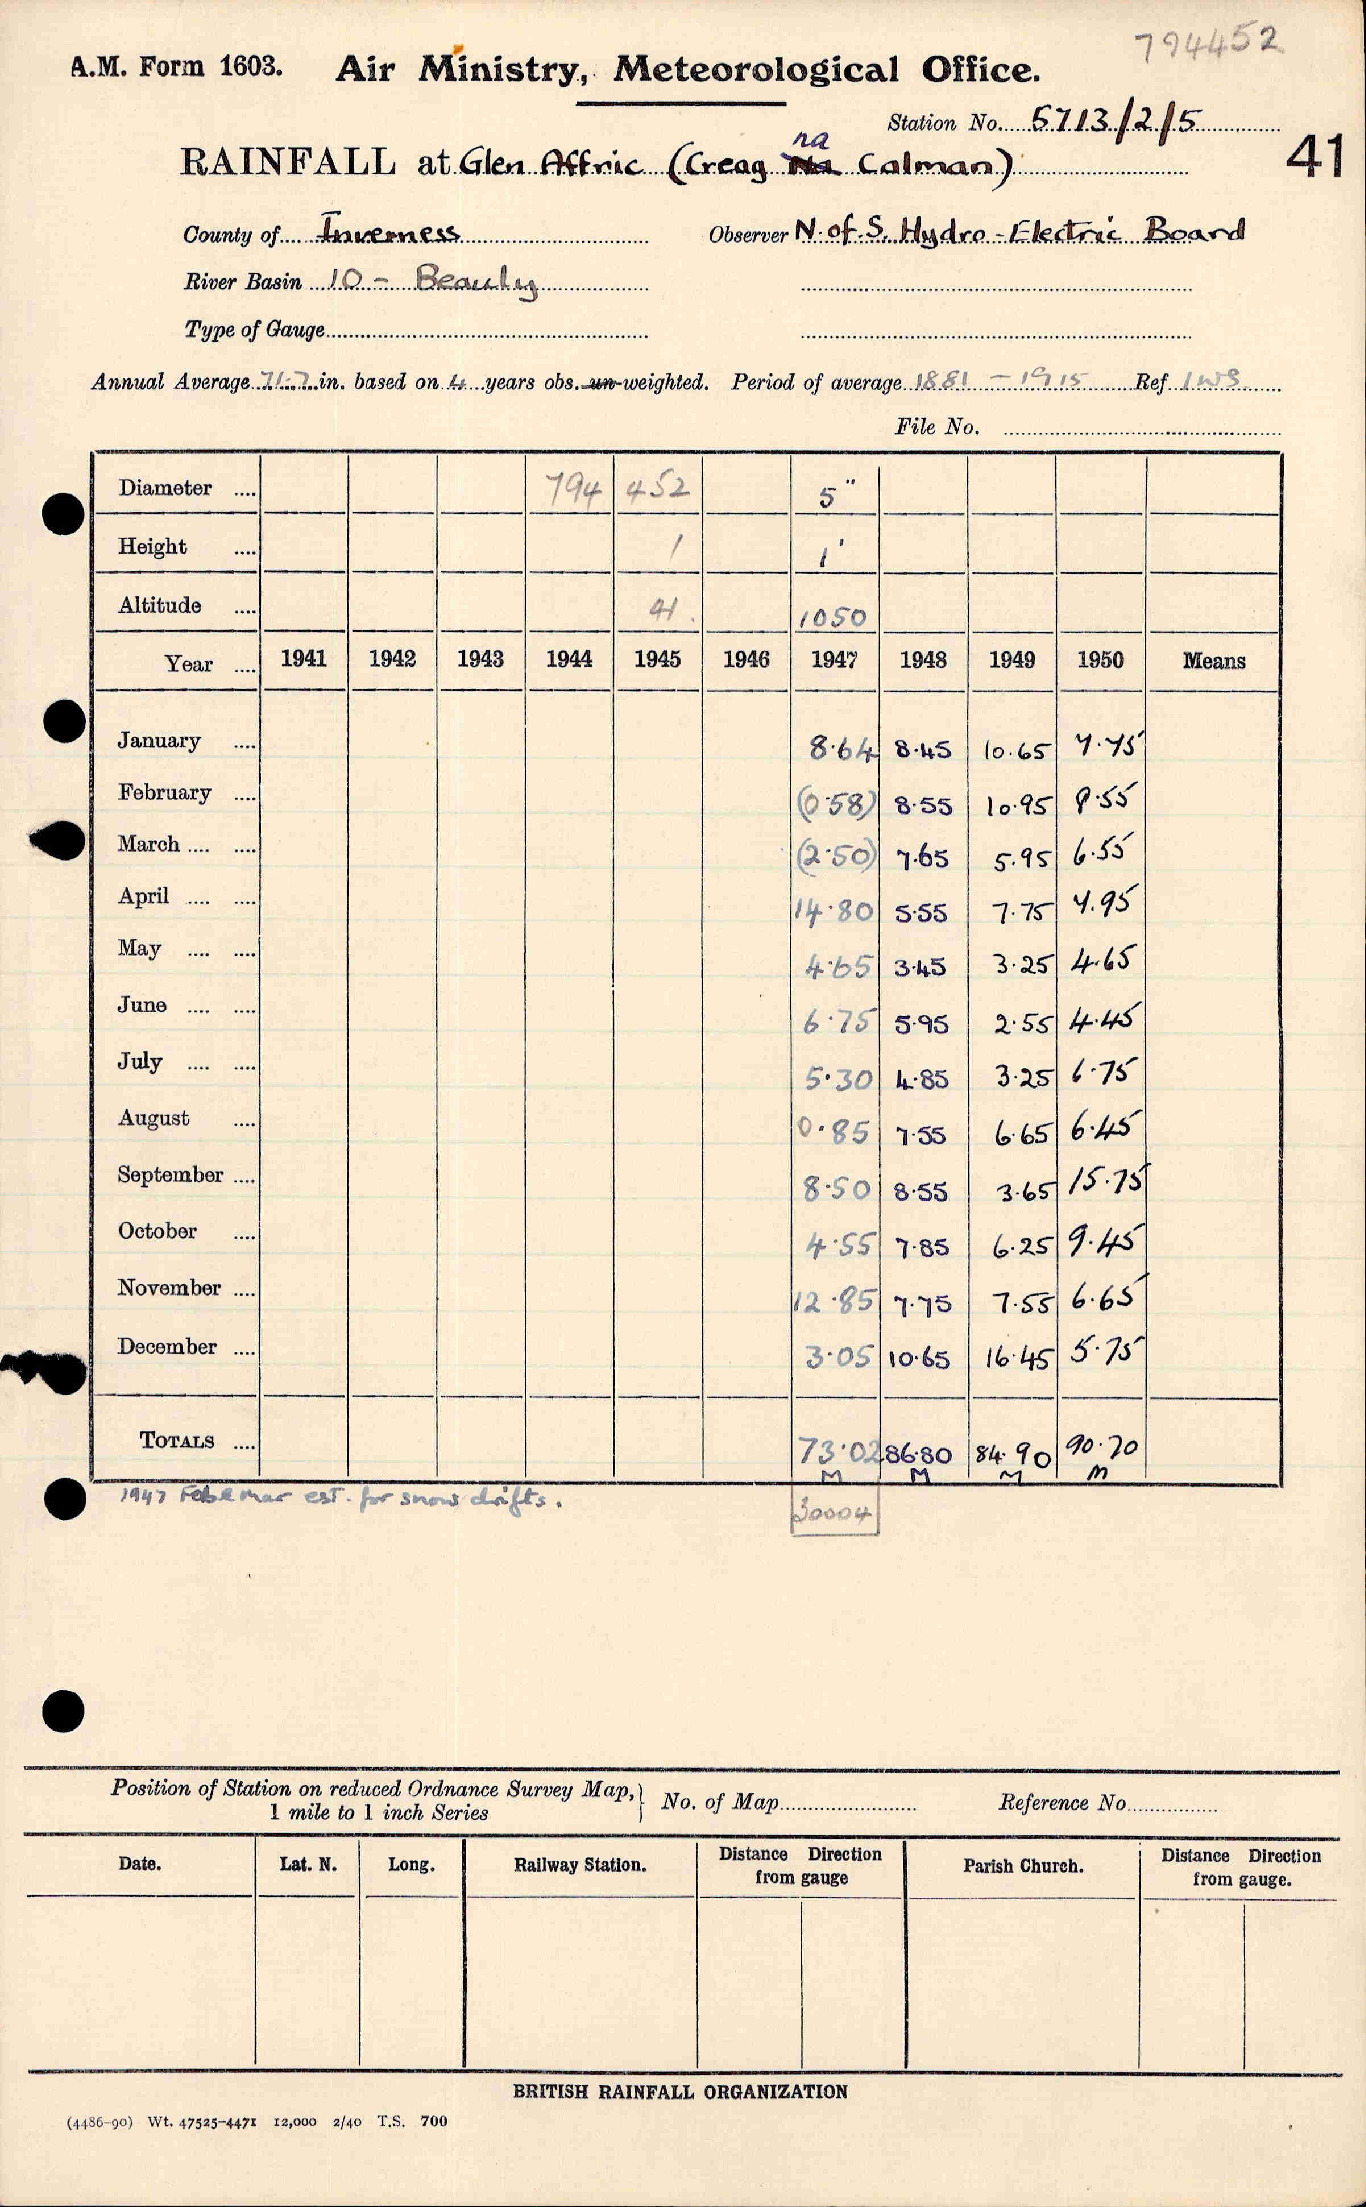 794452
A.M. Form 1603. Air Ministry, Meteorological Office.
Station No. 5713/2/5
41
na
RAINFALL at Glen Affric (Creag Na Calman)
County of Inverness Observer N. of. S. Hydro-Electric Board
River Basin 10 - Beauly
Type of Gauge
Annual Average 71.7 in. based on 4 years obs. un-weighted. Period of average 1881 - 1915 Ref IWS
File No.
Diameter .... 794 452 5"
Height .... 1 1'
Altitude .... 41. 1050
Year .... 1941 1942 1943 1944 1945 1946 1947 1948 1949 1950 Means
January .... 8.64 8.45 10.65 7.75
February .... (0.58) 8.55 10.95 8.55
March .... .... (2.50) 7.65 5.95 6.55
April .... .... 14.80 5.55 7.75 7.95
May .... .... 4.65 3.45 3.25 4.65
June .... .... 6.75 5.95 2.55 4.45
July .... .... 5.30 4.85 3.25 6.75
August .... 0.85 7.55 6.65 6.45
September .... 8.50 8.55 3.65 15.75
October .... 4.55 7.85 6.25 9.45
November .... 12.85 7.75 7.55 6.65
December .... 3.05 10.65 16.45 5.75
TOTALS .... 73.02 86.80 84.90 90.70
M M M M
1947 Feb & Mar est. for snow drifts.
30004
Position of Station on reduced Ordnance Survey Map, } No. of Map Reference No
1 mile to 1 inch Series
Date. Lat. N. Long. Railway Station. Distance Direction from gauge Parish Church. Distance Direction from gauge.
BRITISH RAINFALL ORGANIZATION
(4486-90) Wt. 47525-4471 12,000 2/40 T.S. 700